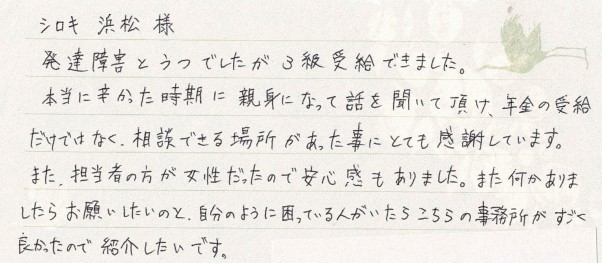 シロキ 浜松 様
発達障害とうつでしたが 3級受給できました。
本当に辛かった時期に親身になって話を聞いて頂け、年金の受給
だけではなく、相談できる場所があった事にとても感謝しています。
また、担当者の方が女性だったので安心感もありました。また何かありま
したらお願いしたいのと、自分のように困っている人がいたらこちらの事務所がすごく
良かったので紹介したいです。